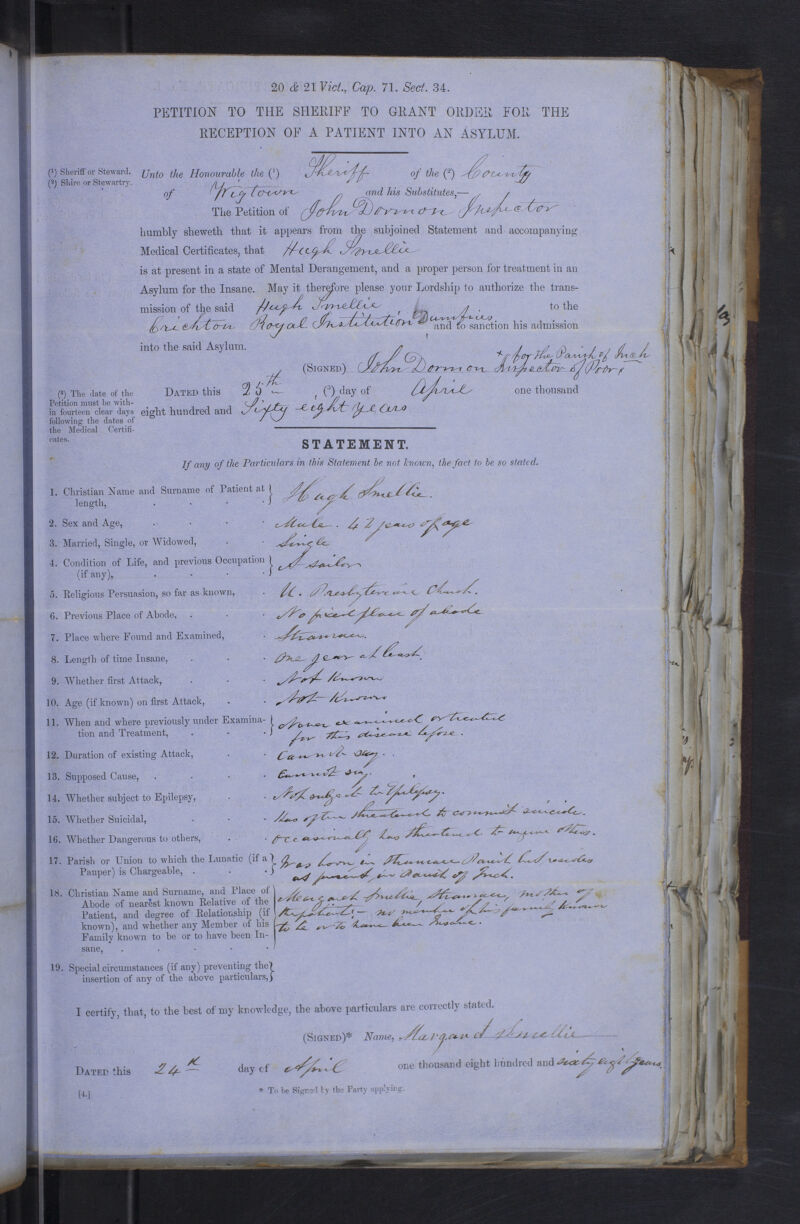 20 & 21 Vict., Cap. 71. Sect. 34.
PETITION TO THE SHERIFF TO GRANT ORDER FOR THE
RECEPTION OF A PATIENT INTO AN ASYLUM.
(¹) Sheriff or Steward.
(²) Shire or Stewartry.
Unto the Honourable the (¹) Sheriff of the (²) County
of Wigtown and his Substitutes,—
The Petition of John Dornon Inspector
humbly sheweth that it appears from the subjoined Statement and accompanying
Medical Certificates, that Hugh Smellie
is at present in a state of Mental Derangement, and a proper person for treatment in an
Asylum for the Insane. May it therefore please your Lordship to authorize the trans-
mission of the said Hugh Smellie to the
Crichton Royal Institution Dumfries and to sanction his admission
into the said Asylum.
+ for the Parish of Inch
(SIGNED) John Dornon Inspector of Poor +
(³) The date of the
Petition must be with-
in fourteen clear days
following the dates of
the Medical Certifi-
cates.
DATED this 25th , (³) day of April one thousand
eight hundred and Sixty eight years
STATEMENT.
If any of the Particulars in this Statement be not known, the fact to be so stated.
1. Christian Name and Surname of Patient at
length, Hugh Smellie.
2. Sex and Age, Male. 42 years of age
3. Married, Single, or Widowed, Single
4. Condition of Life, and previous Occupation
(if any), A sailor
5. Religious Persuasion, so far as known, U. Presbyterian Church.
6. Previous Place of Abode, No fixed place of abode
7. Place where Found and Examined, Stranraer.
8. Length of time Insane, One year at least.
9. Whether first Attack, Not Known
10. Age (if known) on first Attack, Not Known
11. When and where previously under Examina-
tion and Treatment, Never examined or treated
for this disease before.
12. Duration of existing Attack, Cannot say.
13. Supposed Cause, Cannot say.
14. Whether subject to Epilepsy, Not subject to Epilepsy.
15. Whether Suicidal, Has often threatened to commit suicide.
16. Whether Dangerous to others, Occasionally has threatened to injure others.
17. Parish or Union to which the Lunatic (if a
Pauper) is Chargeable, Was born in Stranraer Parish but resides
at present in Parish of Inch.
18. Christian Name and Surname, and Place of
Abode of nearest known Relative of the
Patient, and degree of Relationship (if
known), and whether any Member of his
Family known to be or to have been In-
sane,
Margaret Smellie, Stranraer, mother of
the patient; – no member of his family known
to be or to have been Insane.
19. Special circumstances (if any) preventing the
insertion of any of the above particulars,
I certify, that, to the best of my knowledge, the above particulars are correctly stated.
(SIGNED)* Name, Margaret Smellie
DATED this 24th day of April one thousand eight hundred and sixty eight years.
[4.]
* To be Signed by the Party applying.